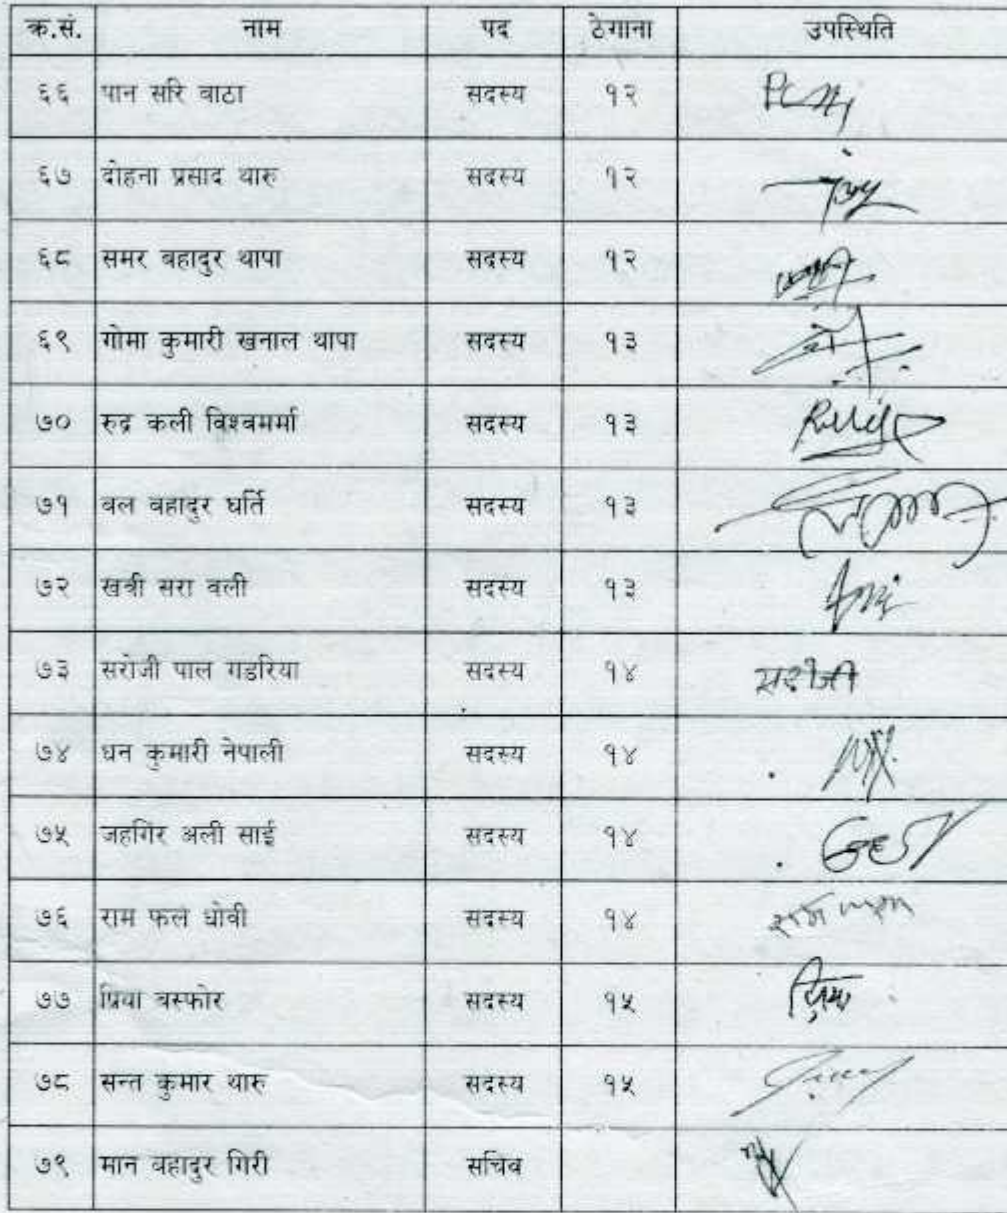 क्र.सं. नाम पद ठेगाना उपस्थिति
६६ पान सरि वाठा सदस्य १२
६७ दोहना प्रसाद थारु सदस्य १२
६८ समर बहादुर थापा सदस्य १२
६९ गोमा कुमारी खनाल थापा सदस्य १३
७० रुद्र कली विश्वमर्मा सदस्य १३
७१ वल वहादुर घर्ति सदस्य १३
७२ खत्री सरा वली सदस्य १३
७३ सरोजी पाल गडरिया सदस्य १४ सरोजी
७४ धन कुमारी नेपाली सदस्य १४
७५ जहगिर अली साई सदस्य १४
७६ राम फल धोवी सदस्य १४
७७ प्रिया बस्फोर सदस्य १५
७८ सन्त कुमार थारु सदस्य १५
७९ मान बहादुर गिरी सचिव